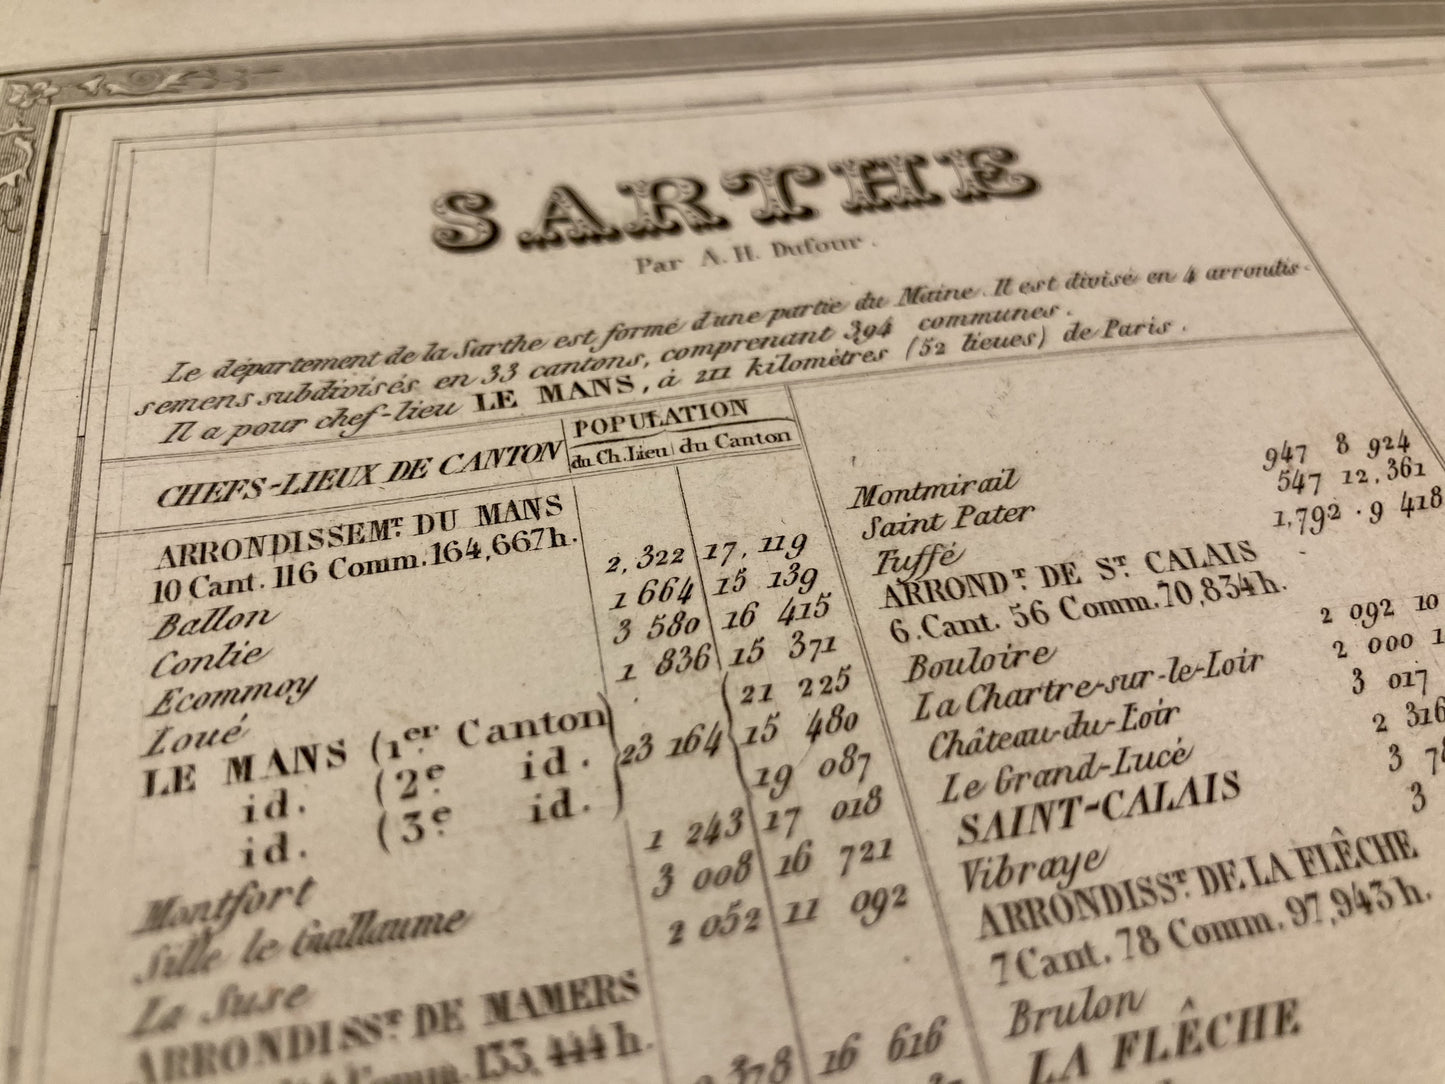 SARTHE
Par A. H. Dufour.
Le département de la Sarthe est formé d'une partie du Maine. Il est divisé en 4 arrondis-
semens subdivisés en 33 cantons, comprenant 394 communes.
Il a pour chef-lieu LE MANS, à 211 kilomètres (52 lieues) de Paris.
CHEFS-LIEUX DE CANTON
POPULATION
du Ch. Lieu du Canton
ARRONDISSEMT. DU MANS
10 Cant. 116 Comm. 164,667h.
Ballon 2,322 17,119
Conlie 1 664 15 139
Ecommoy 3 580 16 415
Loué 1 836 15 371
LE MANS (1er. Canton 21 225
id. (2e id. 23 164 15 480
id. (3e id. 19 087
Montfort 1 243 17 018
Sille le Guillaume 3 008 16 721
La Suse 2 052 11 092
ARRONDISST. DE MAMERS
Comm. 133,444h.
378 16 616
Montmirail 947 8 924
Saint Pater 547 12,361
Tuffé 1,792 9 418
ARRONDT. DE ST. CALAIS
6.Cant. 56 Comm. 70,834h.
Bouloire 2 092 10
La Chartre-sur-le-Loir 2 000 1
Château-du-Loir 3 017
Le Grand-Lucé 2 316
SAINT-CALAIS 3 78
Vibraye 3
ARRONDISST. DE LA FLÊCHE
7 Cant. 78 Comm. 97,943h.
Brulon
LA FLÊCHE